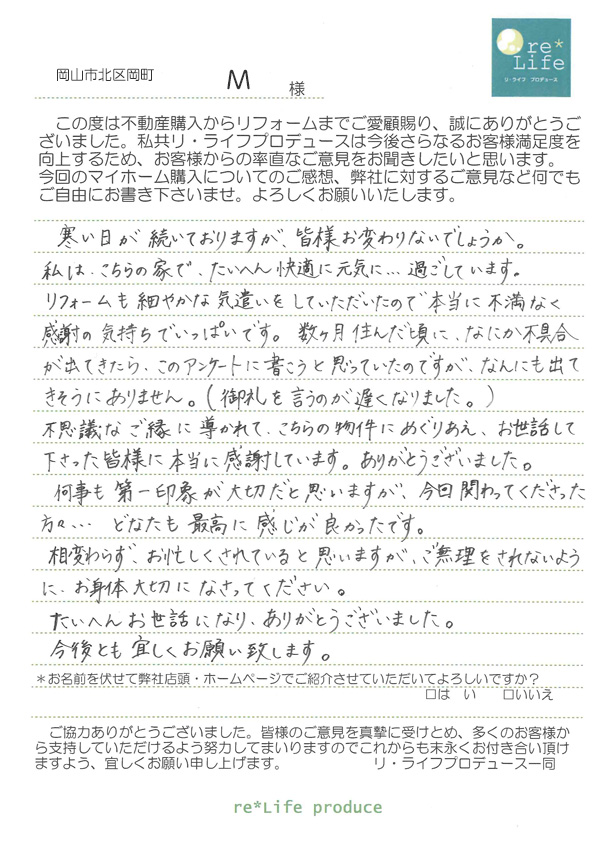 re*
Life
リ・ライフ プロデュース
岡山市北区岡町 M 様
この度は不動産購入からリフォームまでご愛顧賜り、誠にありがとうご
ざいました。私共リ・ライフプロデュースは今後さらなるお客様満足度を
向上するため、お客様からの率直なご意見をお聞きしたいと思います。
今回のマイホーム購入についてのご感想、弊社に対するご意見など何でも
ご自由にお書き下さいませ。よろしくお願いいたします。
寒い日が続いておりますが、皆様お変わりないでしょうか。
私は、こちらの家で、たいへん快適に元気に…過ごしています。
リフォームも細やかな気遣いをしていただいたので本当に不満なく
感謝の気持ちでいっぱいです。数ヶ月住んだ頃に、なにか不具合
が出てきたら、このアンケートに書こうと思っていたのですが、なんにも出て
きそうにありません。(御礼を言うのが遅くなりました。)
不思議なご縁に導かれて、こちらの物件にめぐりあえ、お世話して
下さった皆様に本当に感謝しています。ありがとうございました。
何事も第一印象が大切だと思いますが、今回関わってくださった
方々… どなたも最高に感じが良かったです。
相変わらず、お忙しくされていると思いますが、ご無理をされないよう
に、お身体大切になさってください。
たいへんお世話になり、ありがとうございました。
今後とも宜しくお願い致します。
*お名前を伏せて弊社店頭・ホームページでご紹介させていただいてよろしいですか？
□は い □いいえ
ご協力ありがとうございました。皆様のご意見を真摯に受けとめ、多くのお客様か
ら支持していただけるよう努力してまいりますのでこれからも末永くお付き合い頂け
ますよう、宜しくお願い申し上げます。 リ・ライフプロデュース一同
re*Life produce